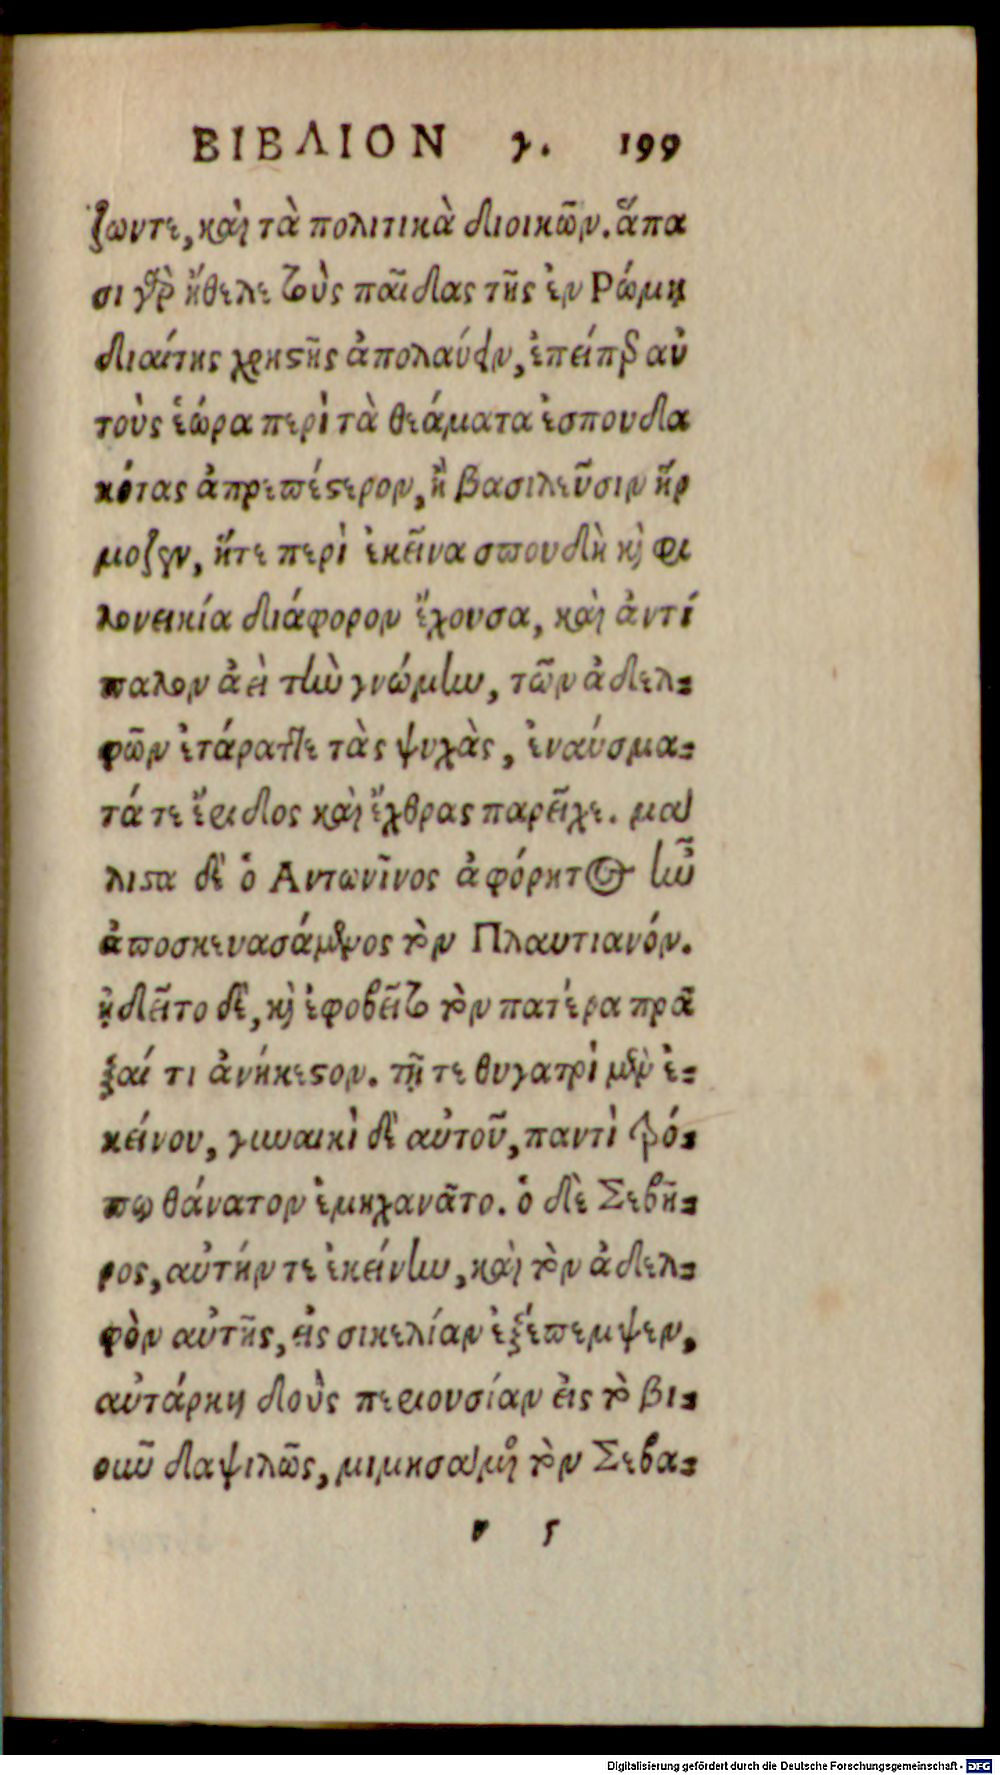 ΒΙΒΛΙΟΝ γ. 199
ζωντε, καὶ τὰ πολιτικὰ διοικῶν. ἅπα
σι γὰρ ἤθελε τοὺς παῖδας τῆς ἐν Ρώμῃ
διαίτης χρηστῆς ἀπολαύειν, ἐπείπερ αὐ
τοὺς ἑώρα περὶ τὰ θεάματα ἐσπουδα
κότας ἀπρεπέστερον, ἢ βασιλεῦσιν ἥρ
μοζεν, ἥτε περὶ ἐκεῖνα σπουδὴ καὶ φι
λονεικία διάφορον ἔχουσα, καὶ ἀντί
παλον ἀεὶ τὴν γνώμην, τῶν ἀδελ-
φῶν ἐτάραττε τὰς ψυχὰς, ἐναύσμα-
τά τε ἔριδος καὶ ἔχθρας παρεῖχε. μά
λιστα δὲ ὁ Αντωνῖνος ἀφόρητος ἦν
ἀποσκευασάμενος τὸν Πλαυτιανόν.
ᾐδεῖτο δὲ, καὶ ἐφοβεῖτο τὸν πατέρα πρᾶ
ξαί τι ἀνήκεστον. τῇ τε θυγατρὶ μὲν ἐ-
κείνου, γυναικὶ δὲ αὐτοῦ, παντὶ τρό-
πῳ θάνατον ἐμηχανᾶτο. ὁ δὲ Σεβῆ-
ρος, αὐτήν τε ἐκείνην, καὶ τὸν ἀδελ-
φὸν αὐτῆς, εἰς σικελίαν ἐξέπεμψεν,
αὐτάρκη δοὺς περιουσίαν εἰς τὸ βι-
οῦν δαψιλῶς, μιμησάμενος τὸν Σεβα-
v 5
Digitalisierung gefördert durch die Deutsche Forschungsgemeinschaft - DFG